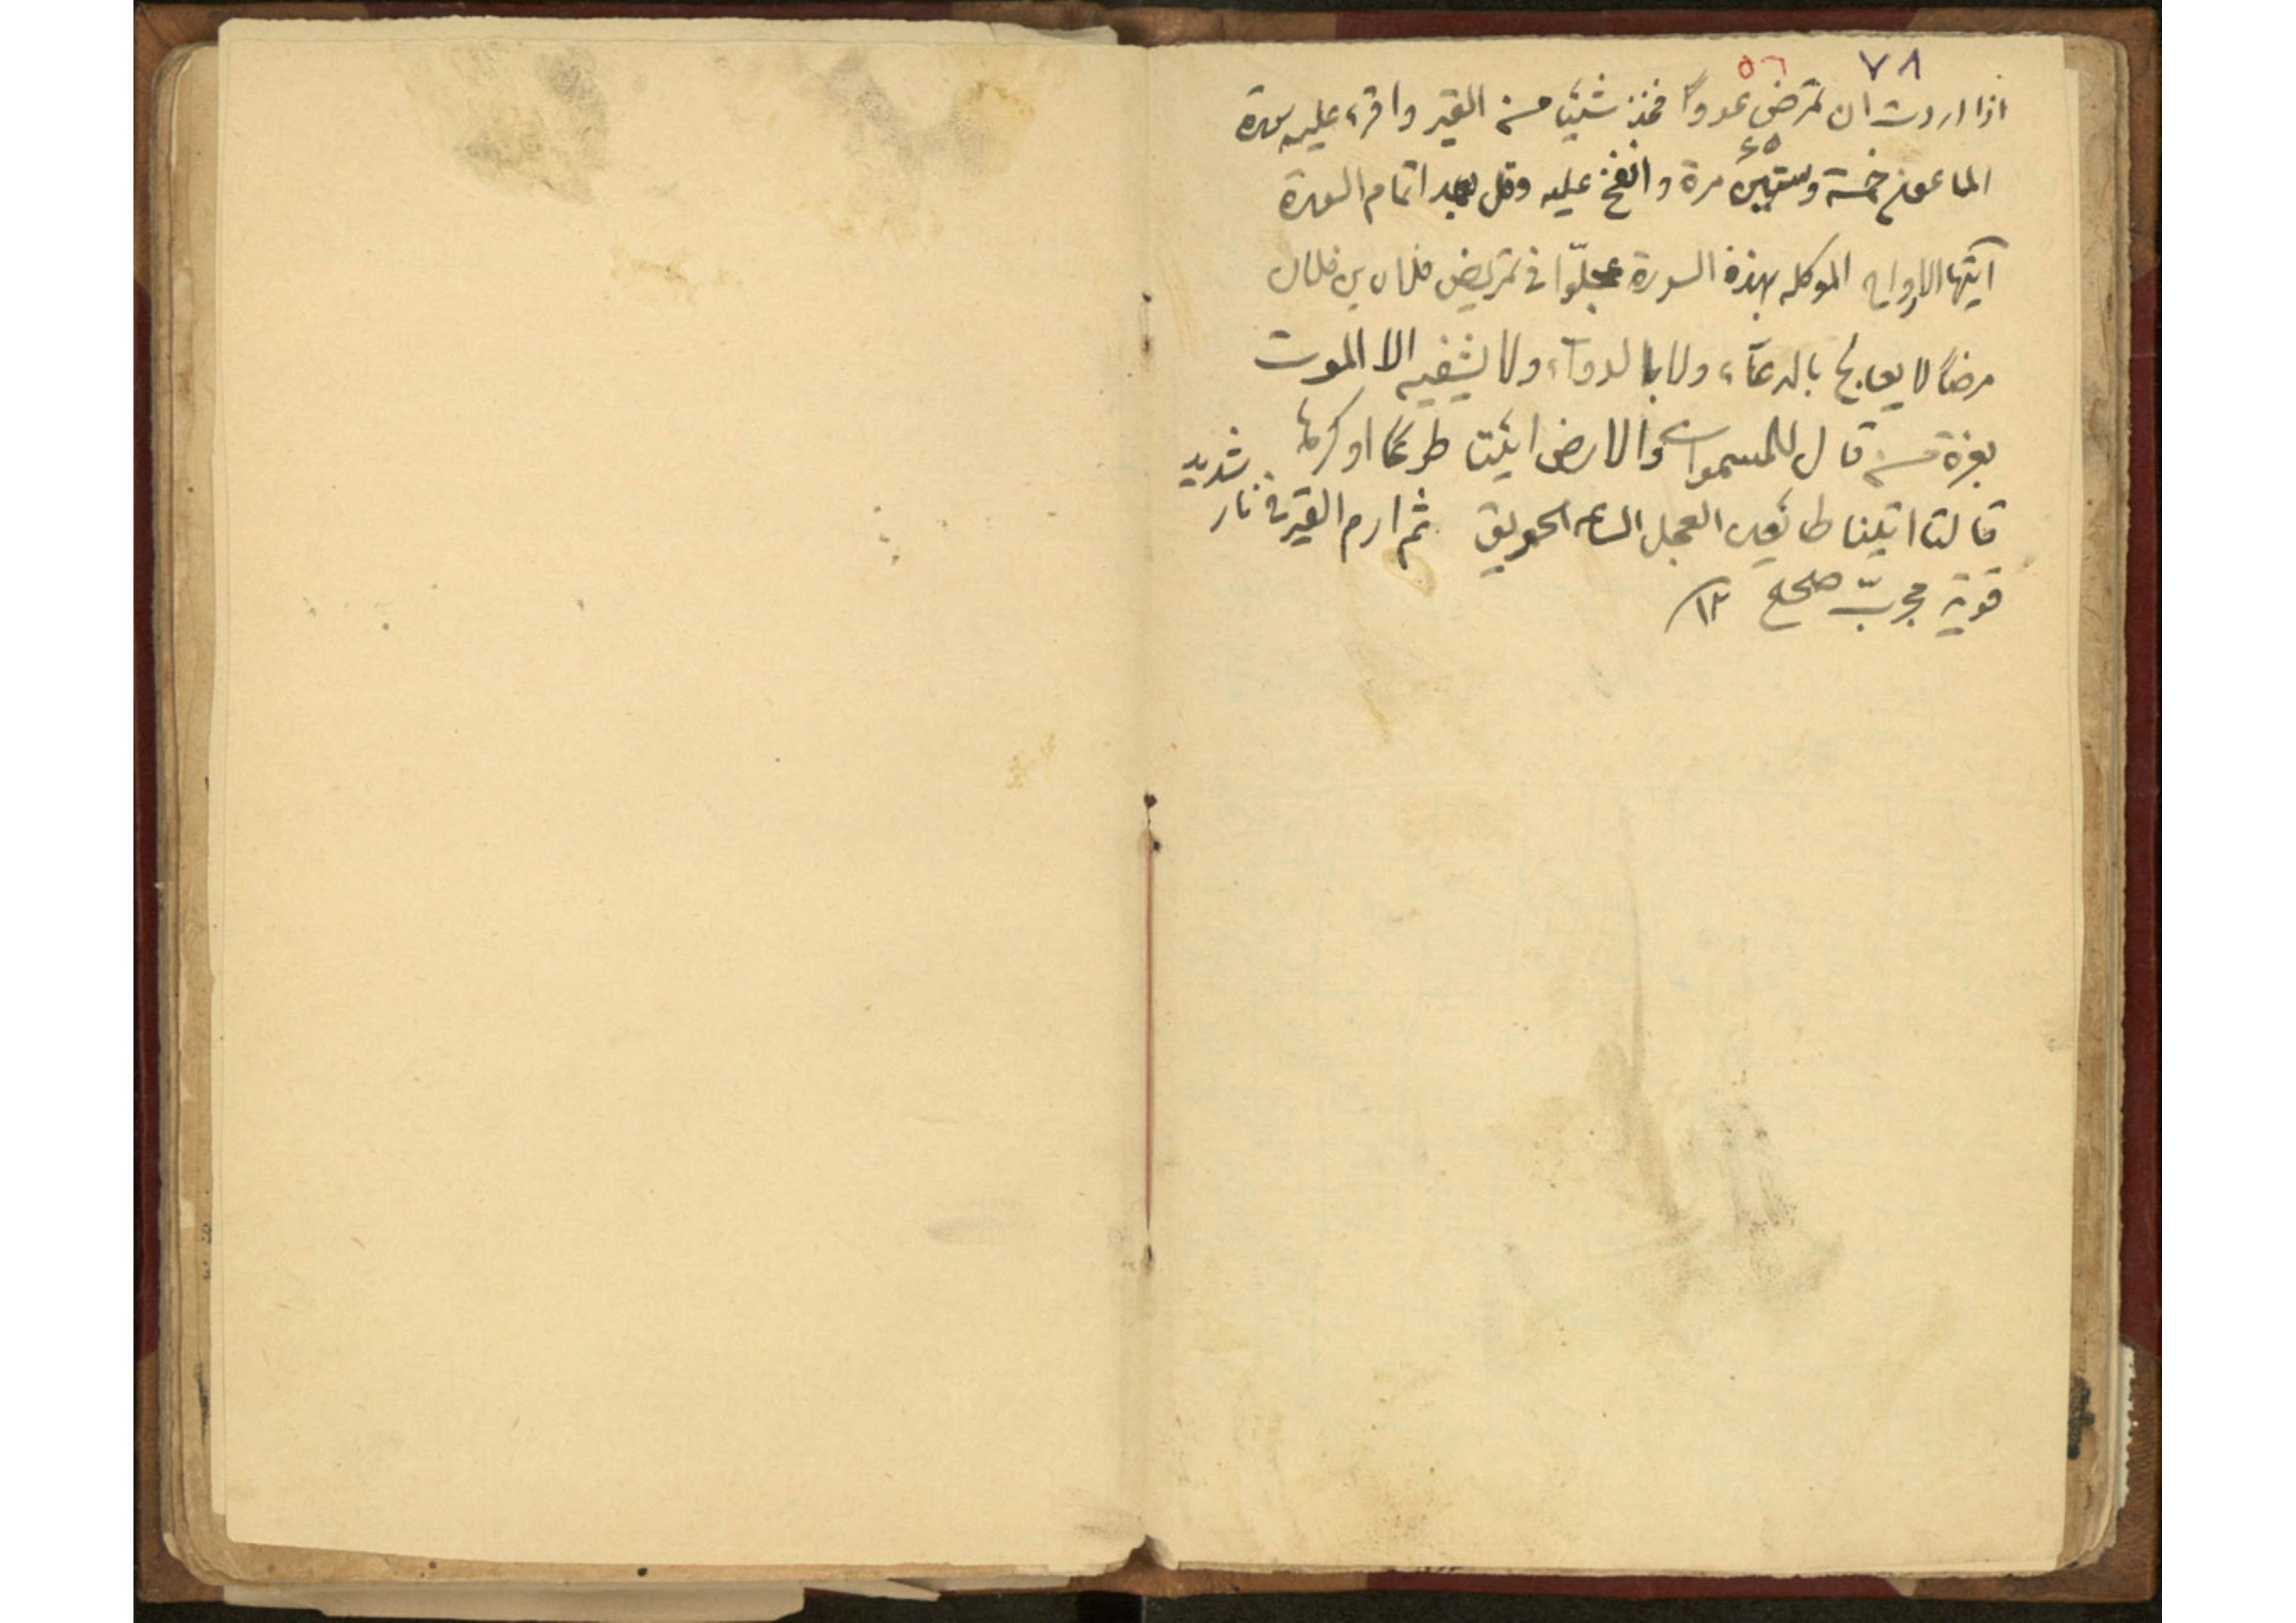 ٧٨ ٥٦
اذا اردت ان تمرض عدوا فخذ شيئا من القير واقرء عليه سورة
٤٥
الماعون خمسة وستين مرة وانفخ عليه وقل بعد اتمام السورة
ايتها الارواح الموكله بهذه السورة عجلّوا في تمريض فلان بن فلان
مرضاً لا يعالج بالدعآء ولا بالدوآء ولا يشفيه الا الموت
بعزة من قال للسموات والارض ائتيا طوعًا او كرها
قالتا اتينا طائعين العجل الساعه الحريق ثم ارم القير في نار شديد
قوية مجربّ صحيح ١٢